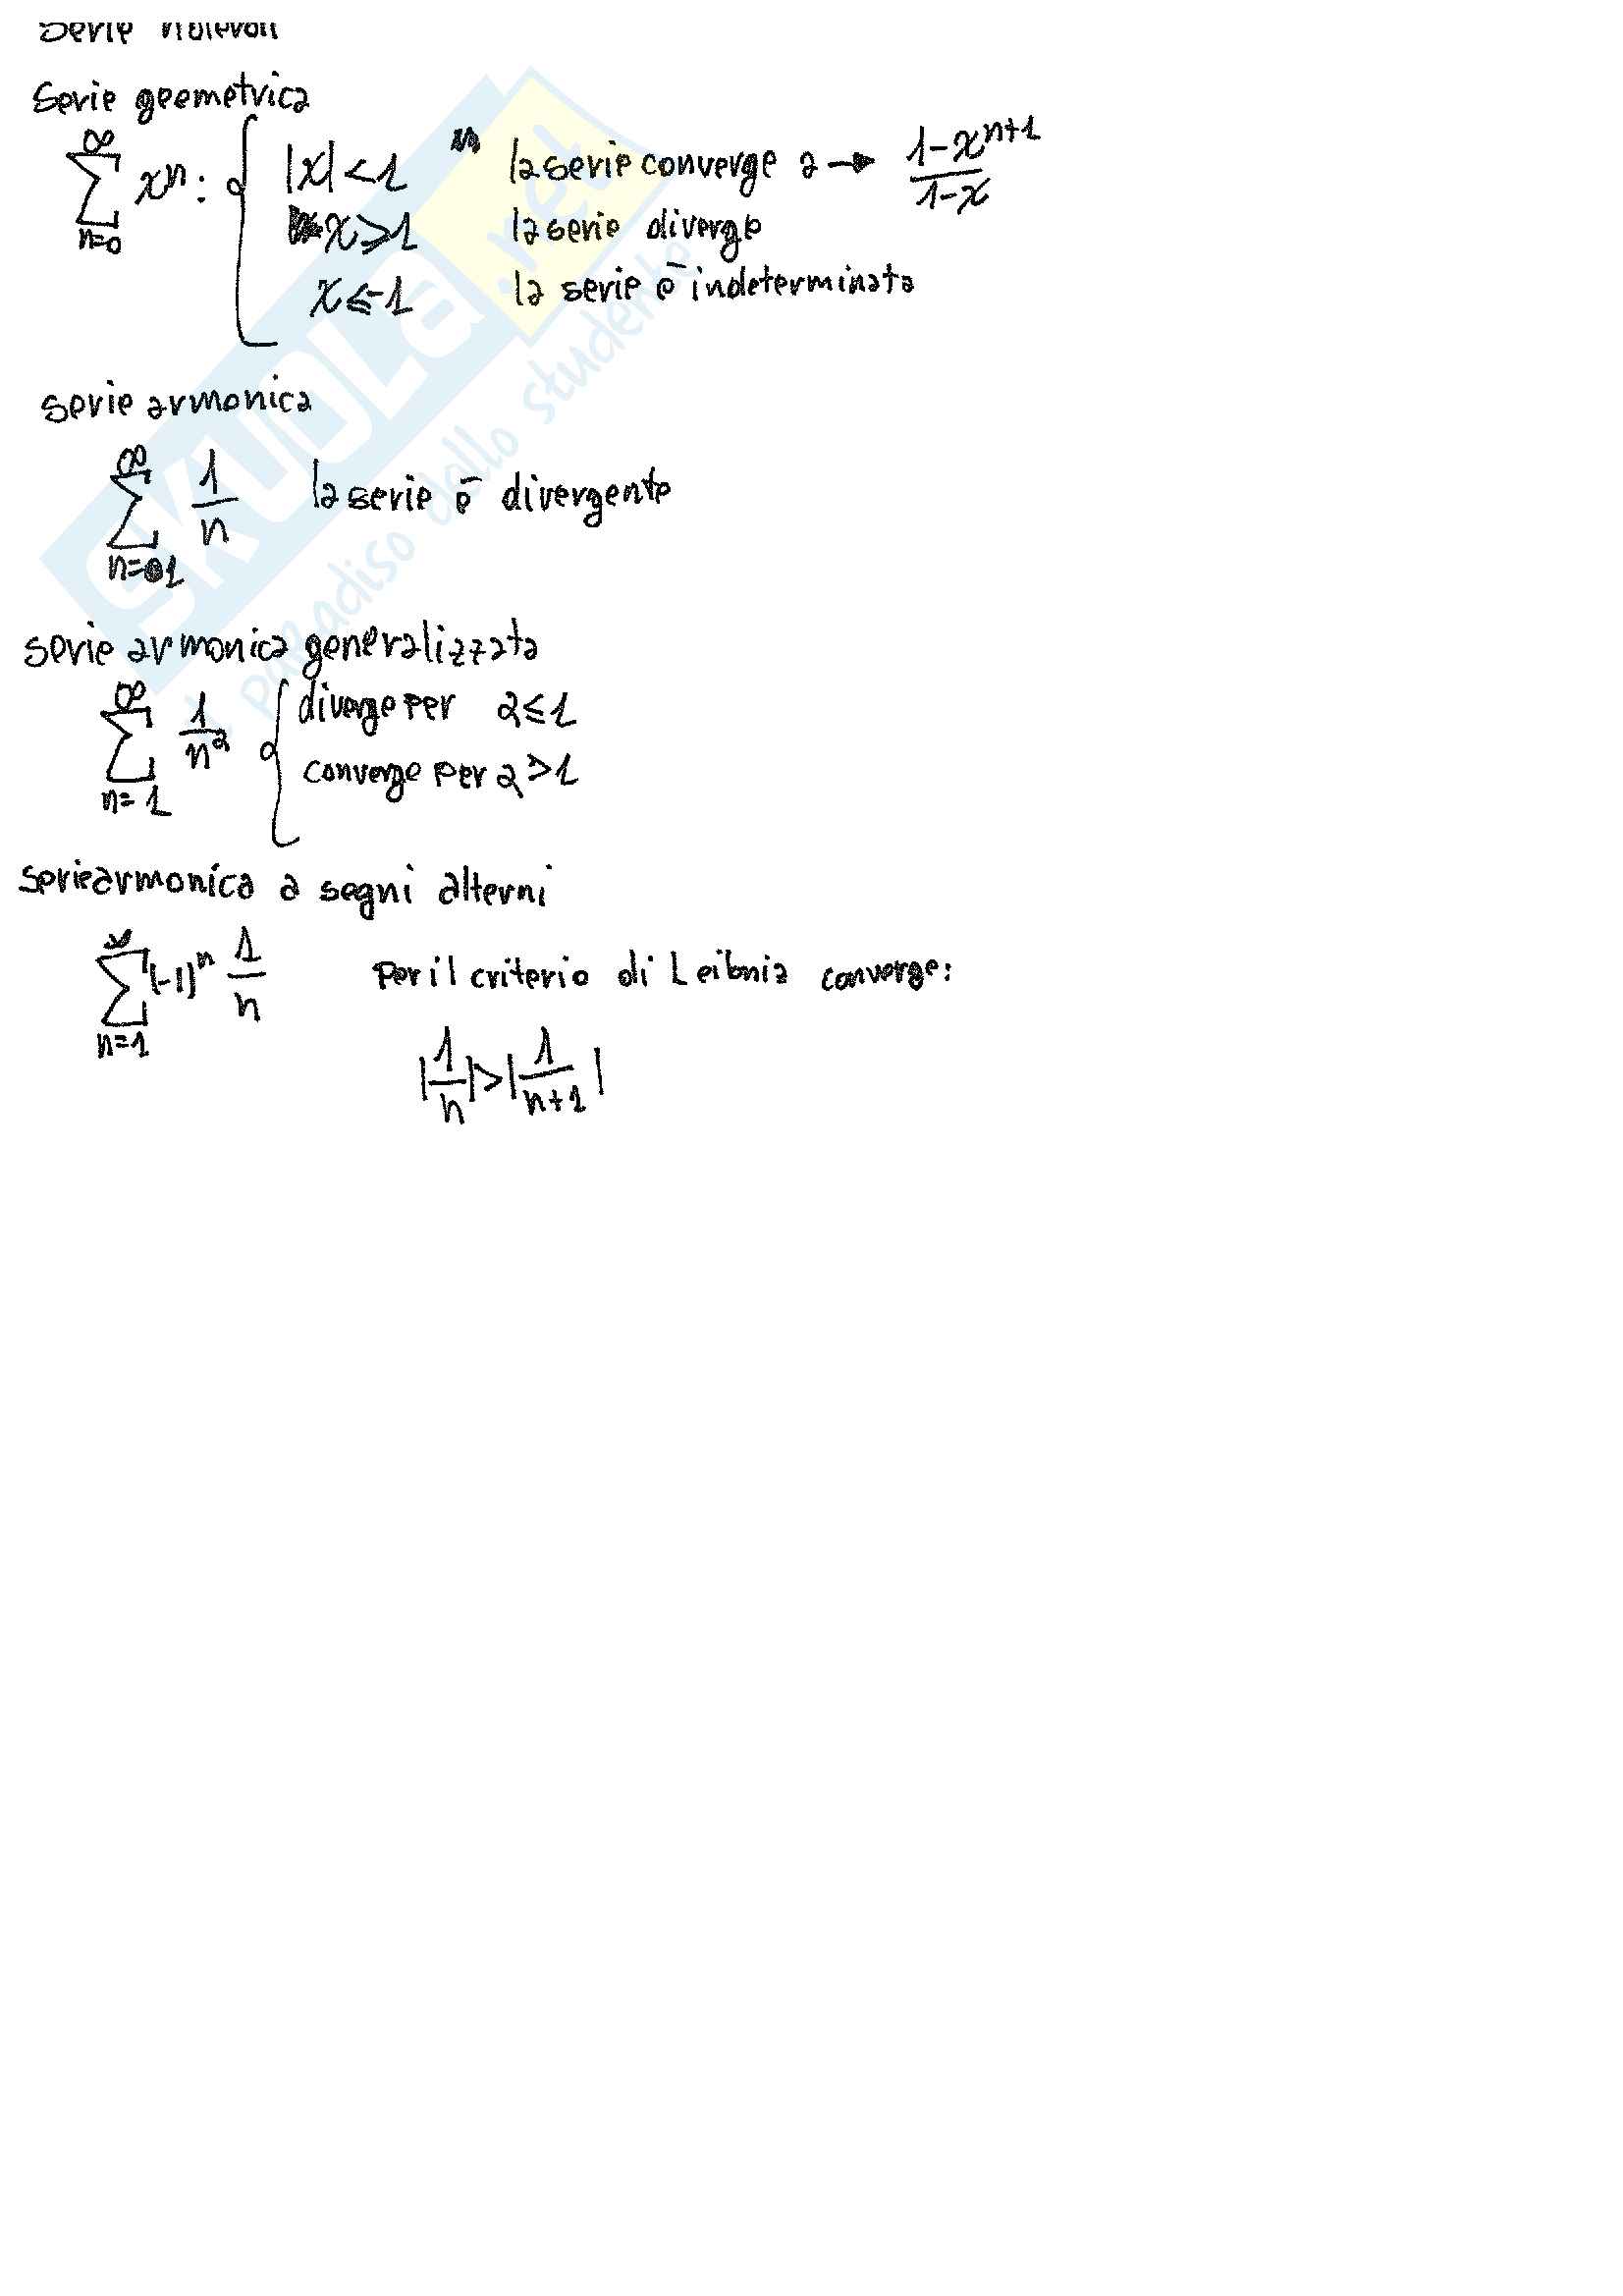 Serie notevoli
Serie geometrica
∞
∑ xⁿ : { |x| < 1 la serie converge a → (1-xⁿ⁺¹)/(1-x)
n=0
x ⩾ 1 la serie diverge
x ⩽ -1 la serie è indeterminata
serie armonica
∞
∑ 1/n la serie è divergente
n=1
serie armonica generalizzata
∞
∑ 1/nᵃ { diverge per a ≤ 1
converge per a > 1
n=1
serie armonica a segni alterni
∞
∑ (-1)ⁿ 1/n Per il criterio di Leibniz converge:
n=1
|1/n| > |1/(n+1)|
SKUOLA.net
paradiso dello studente